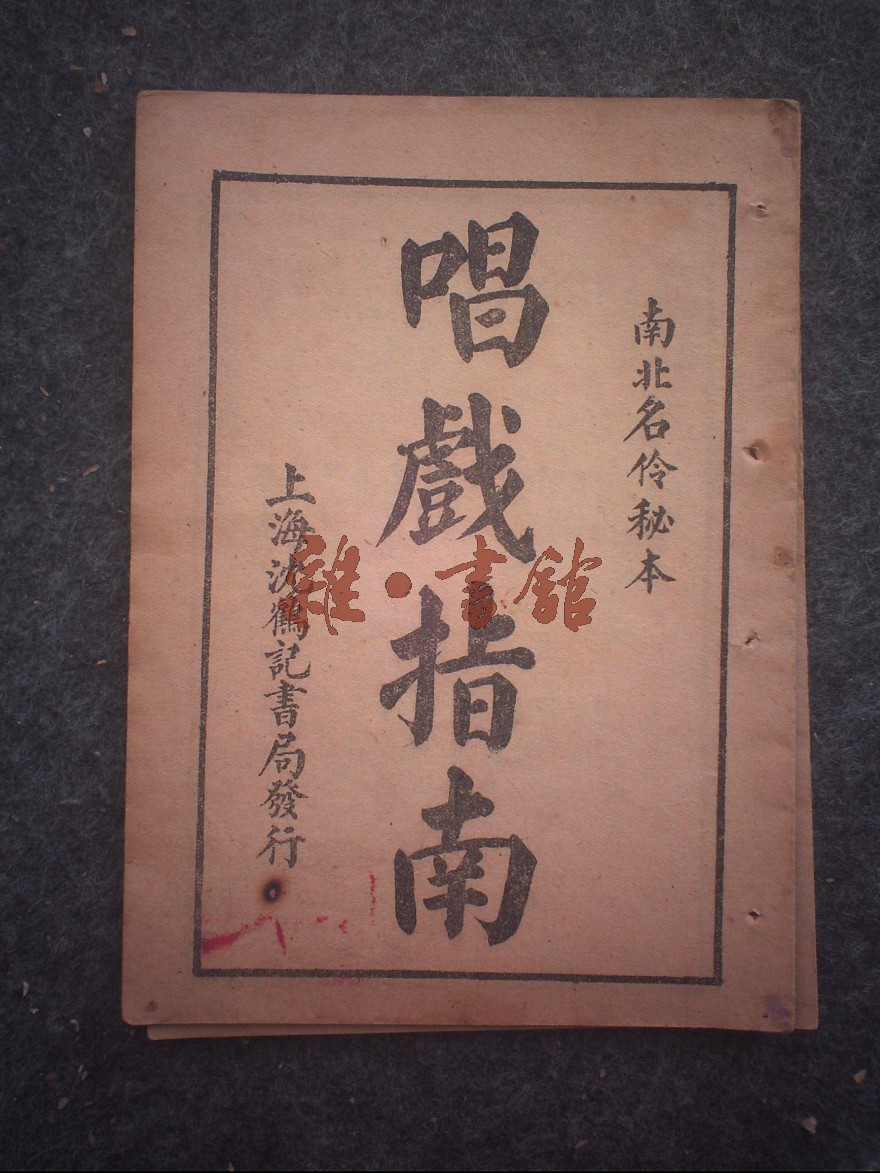 南北名伶秘本
唱戲指南
上海沈鶴記書局發行
雜·書館